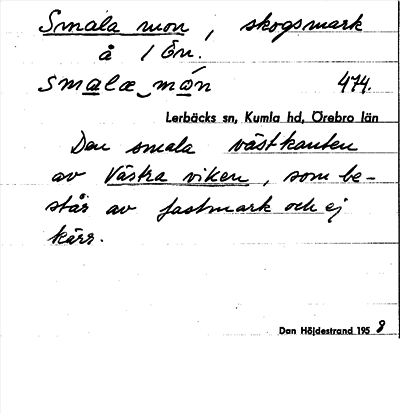 Smala mon, skogsmark
å 1 Ön.
smalæ‿món 474.
Lerbäcks sn, Kumla hd, Örebro län
Den smala västkanten
av Västra viken, som be-
står av fastmark och ej
kärr.
Dan Höjdestrand 1958